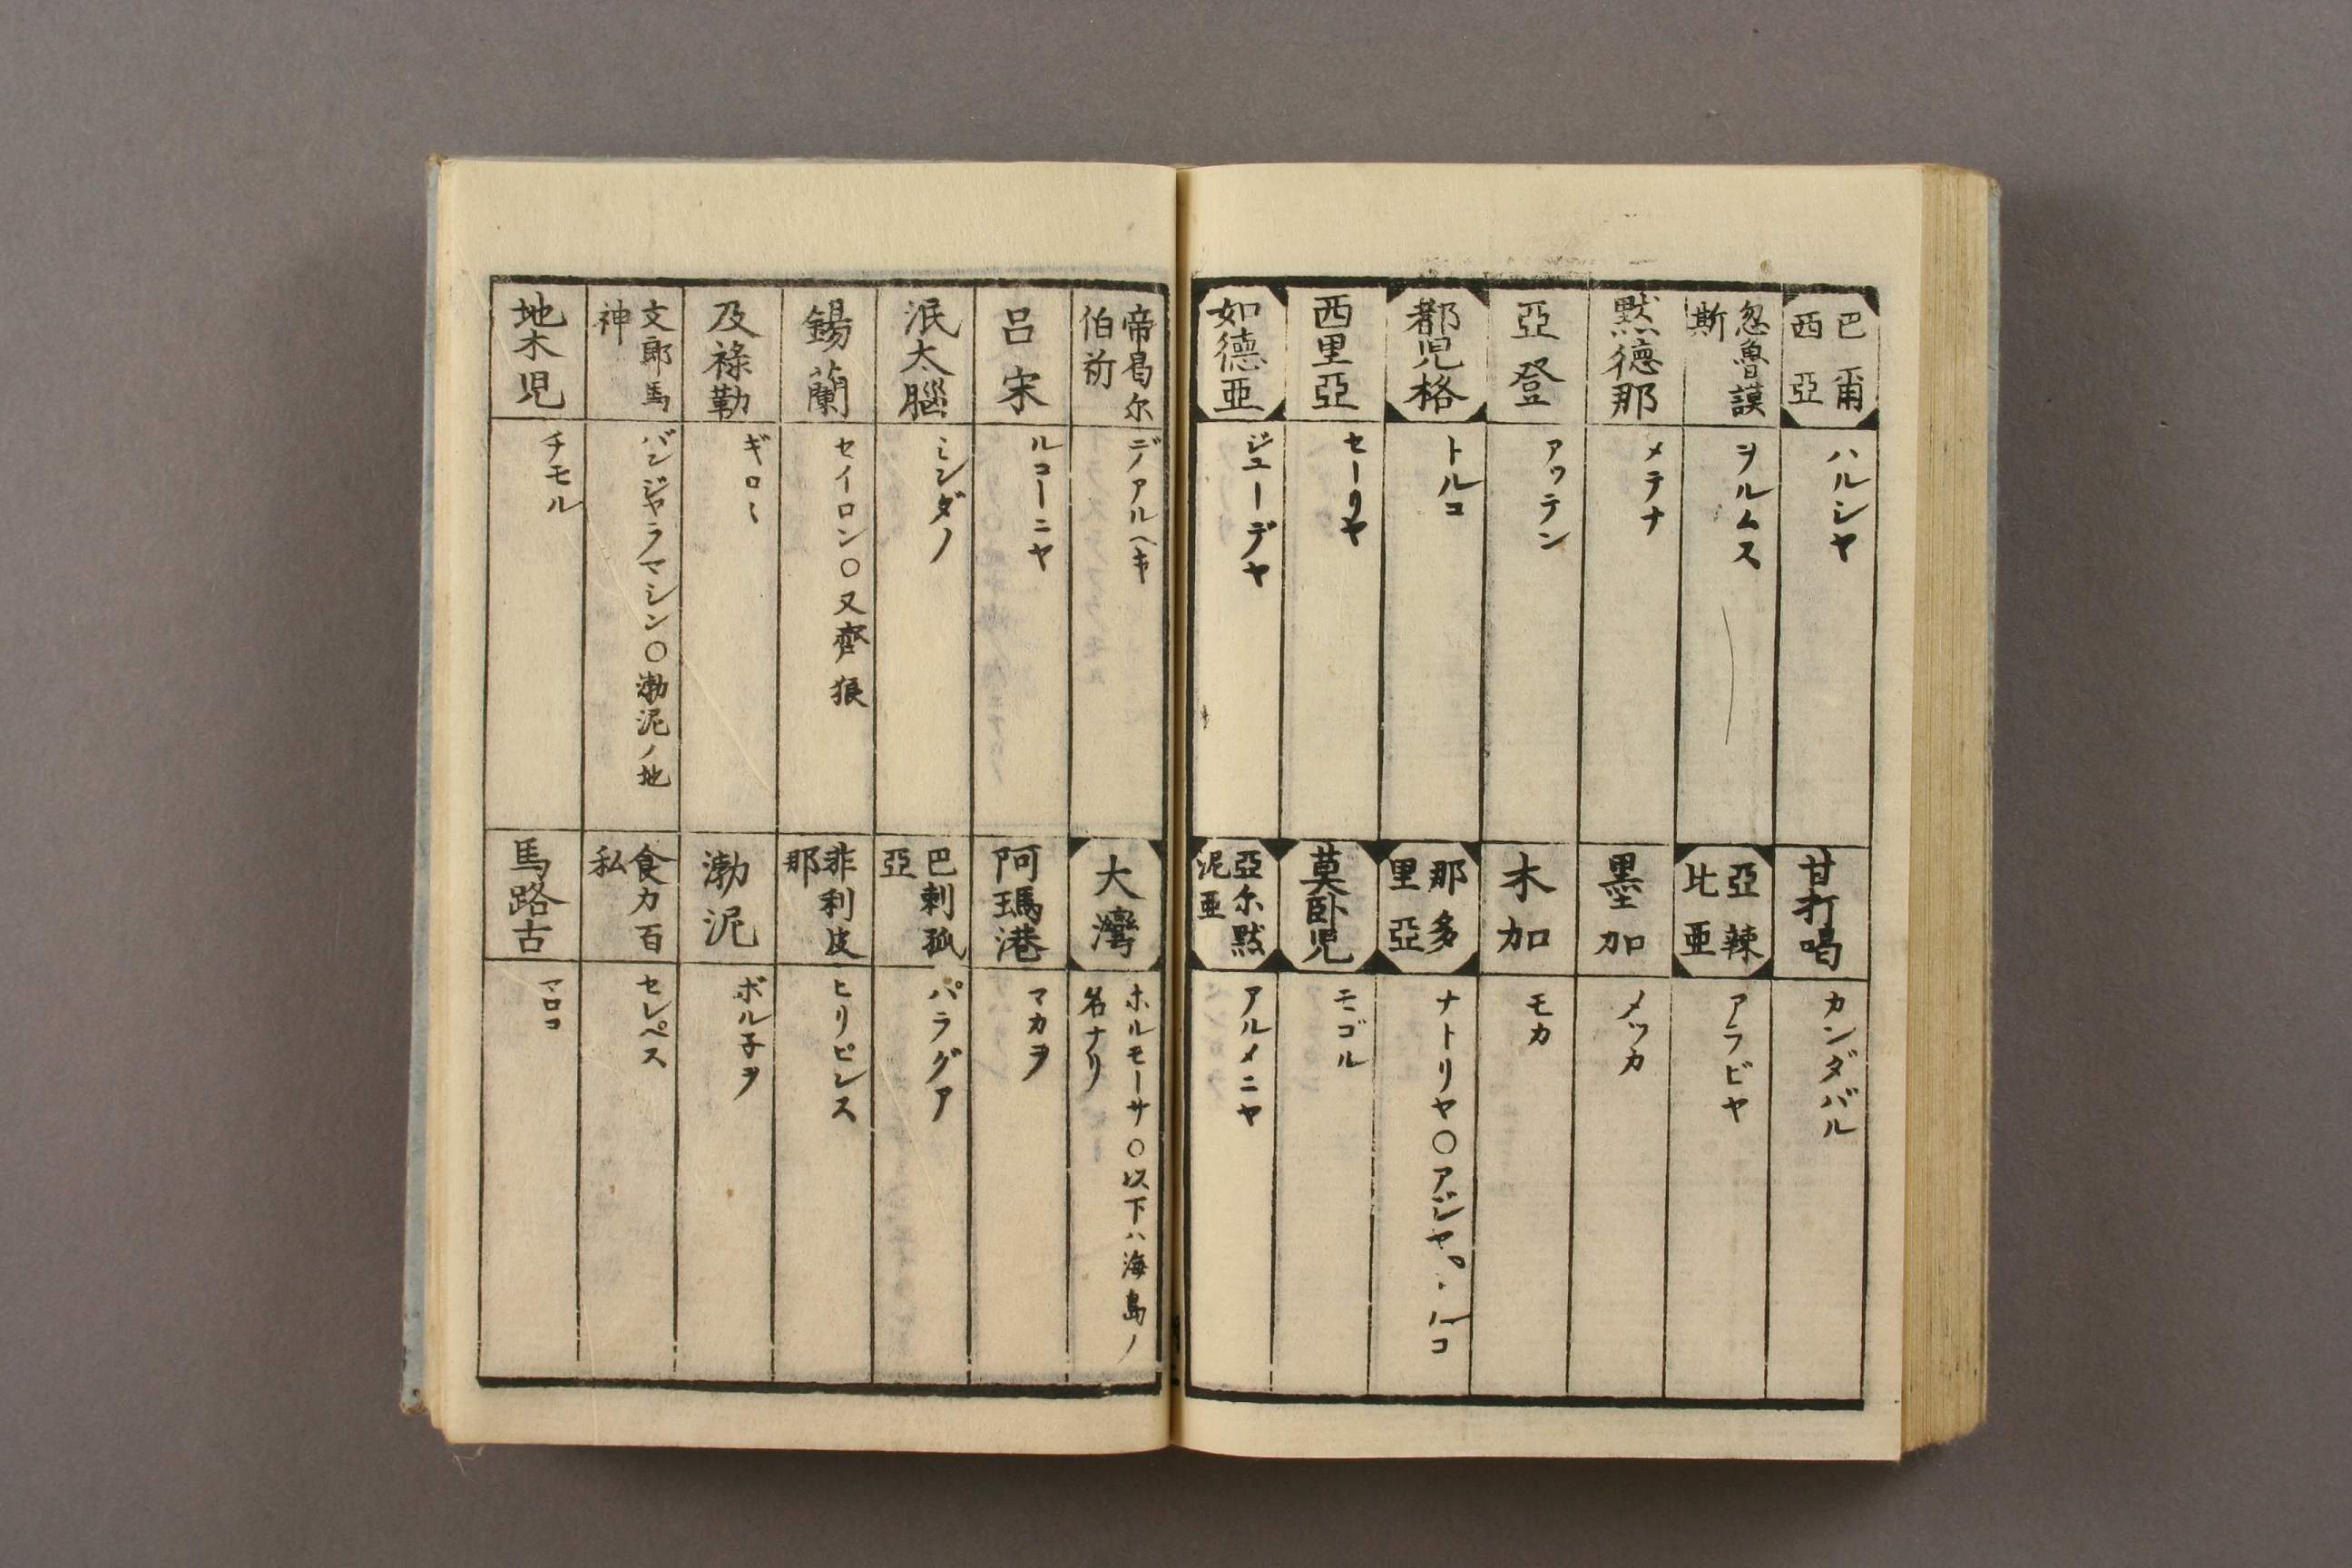 巴爾
西亞
ハルシヤ
忽魯謨
斯
ヲルムス
默德那
メテナ
亞登
アツテン
都児格
トルコ
西里亞
セーリヤ
如德亜
ジユーデヤ
甘打曷
カンダバル
亞辣
比亜
アラビヤ
墨加
メツカ
木加
モカ
那多
里亞
ナトリヤ〇アジヤ
ルコ
莫臥児
モゴル
亞尓黙
泥亜
アルメニヤ
帝曷尓
伯νν
デアルヘキ
呂宋
ルコーニヤ
泯太腦
ミンダノ
錫蘭
セイロン〇又齊狼
及禄勒
ギロヽ
文郎馬
神
バンジヤラマシン〇渤泥ノ地
地木児
チモル
大灣
ホルモーサ〇以下ハ海島ノ
名ナリ
阿瑪港
マカヲ
巴剌孤
亞
パラグア
非利皮
那
ヒリピンス
渤泥
ボル子ヲ
食力百
私
セレペス
馬路古
マロコ